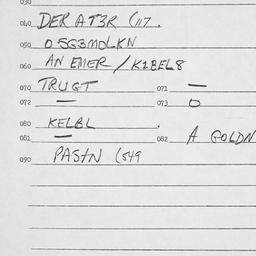 030
040 DER AT3R (117.
050 O5G3MDLKN
060 AN EMER / K1BEL8
070 TRUGT 071 —
072 — 073 O
080 KELBL .
081 — 082 A GOLDN
090 PASTN (549